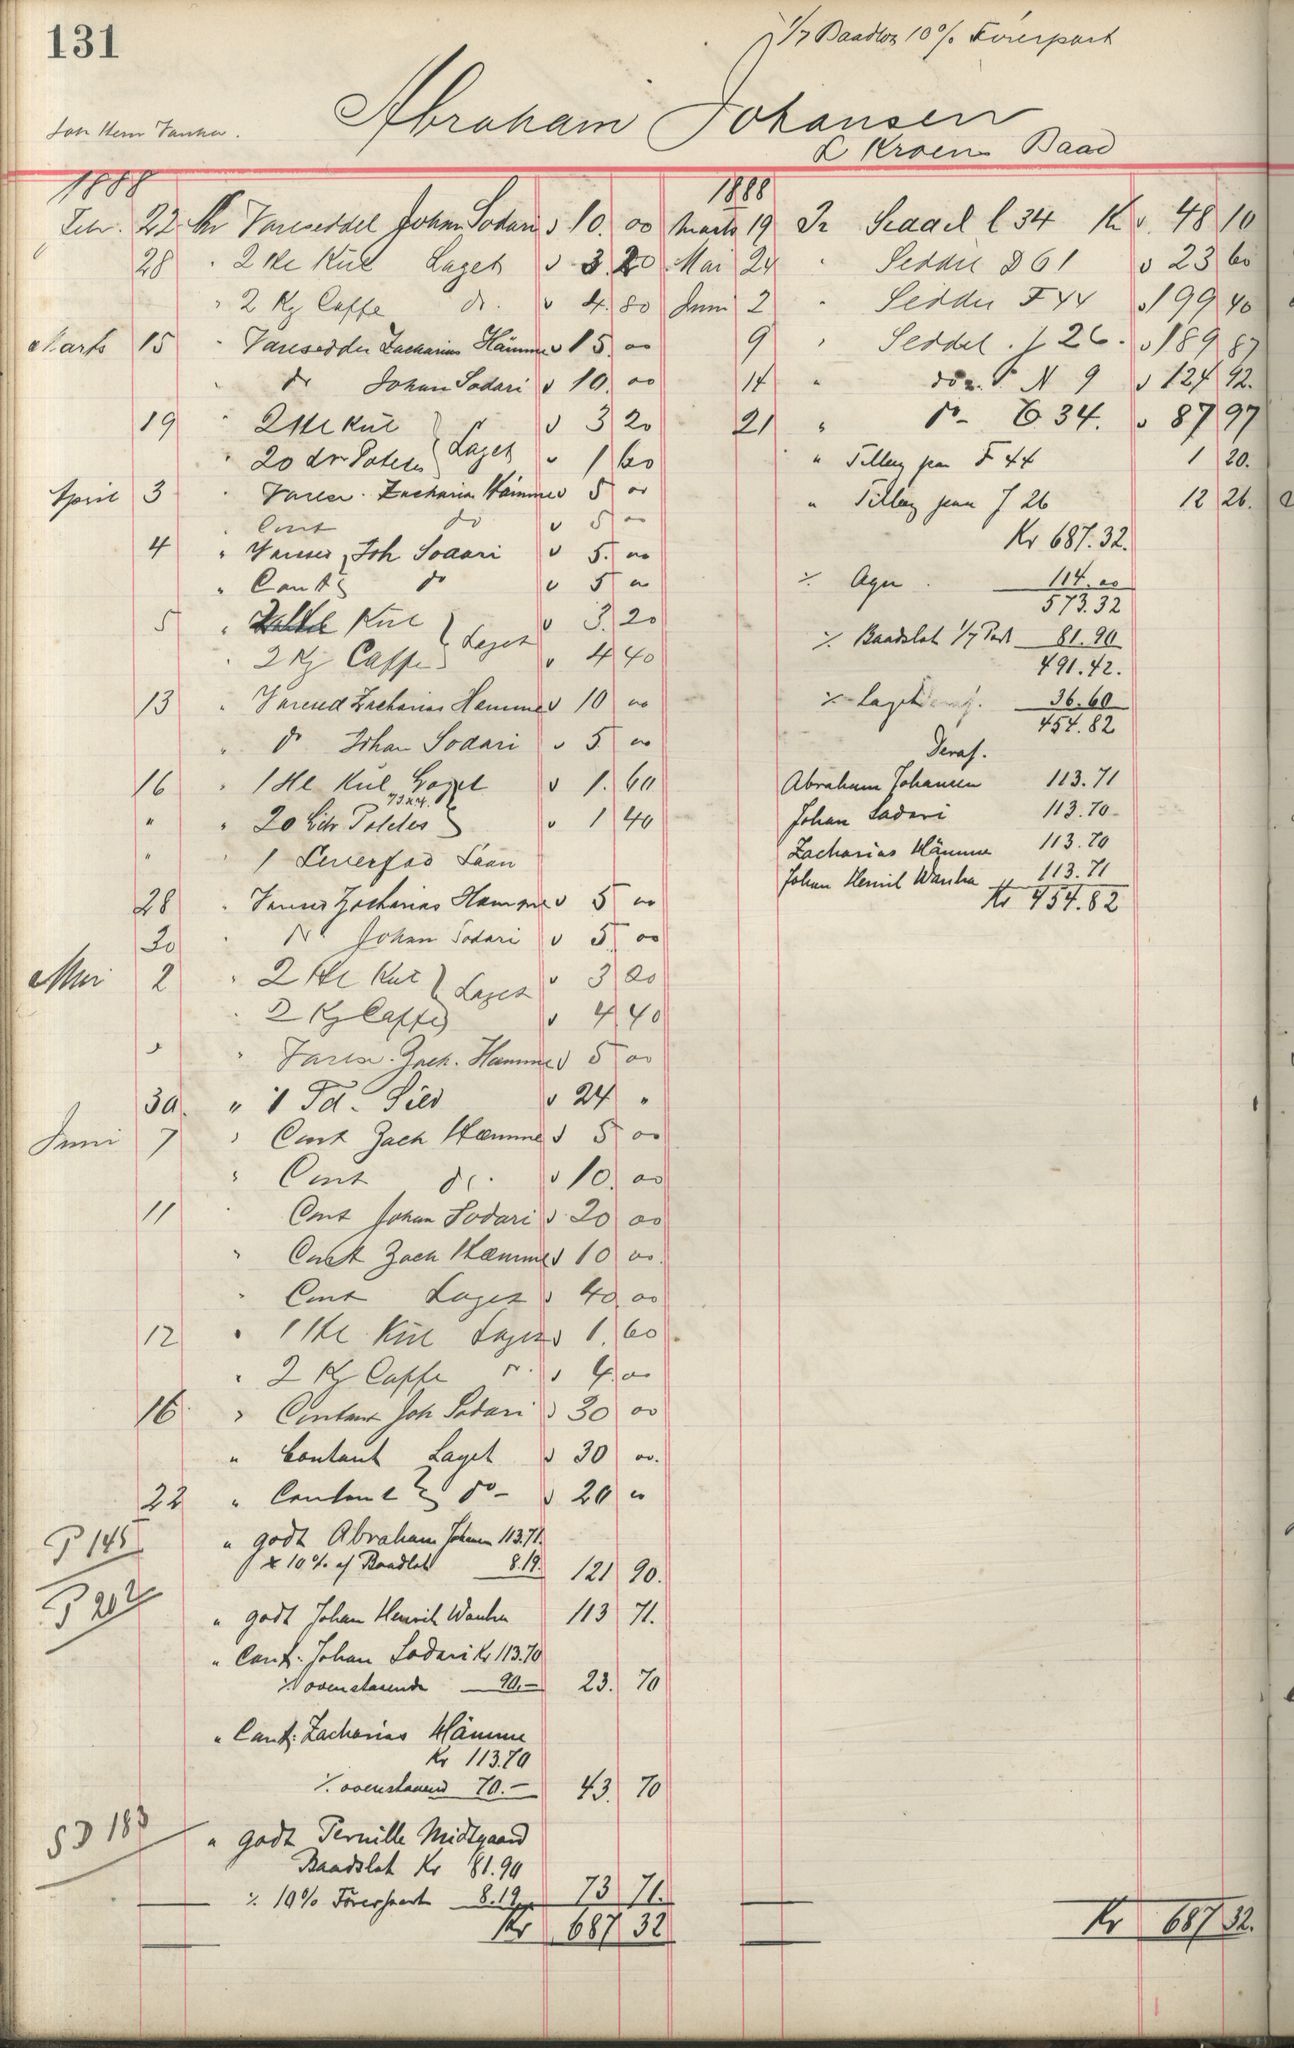 131
1/7 Baadlod 10% Förerpart
Abraham Johansen
Joh Hen Vanha.
L Kroens Baad
1888
Febr. 22 Kr Vareseddel Johan Sodari 10. 00
" 28 " 2 Hl Kul Laget 3.20
" 2 Kg Caffe do. 4.80
Marts 15 " Vareseddel Zacharias Hämme 15.00
" do Johan Sodari 10.00
19 " 2 Hl Kul } Laget 3 20
" 20 Poteter } 1 60
April 3 " Varese. Zacharias Hämme 5 00
" Cont do 5 00
4 " Varese Joh Sodari 5.00
" Cont do 5 00
5 " Kul } Laget 3.20
" 2 Kg Caffe } 4 40
13 " Varesed Zacharias Hamme 10 00
" do Johan Sodari 5 00
16 " 1 Hl Kul Laget 1.60
" " 20 Litr Poteter 1 40
" " 1 Leverfad Laan
28 " Varese Zacharias Hamme 5 00
30 " do Johan Sodari 5 00
Mai 2 " 2 Hl Kul } Laget 3 20
" 2 Kg Caffe } 4.40
" " Varese. Zach. Hamme 5 00
30. " 1 Td. Sild 24 "
Juni 7 " Cont Zach Hæmme 5 00
" Cont do. 10.00
11 " Cont Johan Sodari 20 00
" Cont Zach Hæmme 10 00.
" Cont Laget 40.00
12 " 1 Hl Kul Laget 1.60
" 2 Kg Caffe do. 4.00
16 " Contant Joh Sodari 30 00
" Contant Laget 30 00.
22 " Contant do 20 00
P 145
" godt Abraham Johansen 113.71.
x 10% af Baadlot 8.19. 121 90.
P 202
" godt Johan Henrik Wanha 113 71.
" Cont. Johan Sodari Kr 113.70
% ovenstaaende 90.— 23. 70
" Cont: Zacharias Hämme
Kr 113.70
% ovenstaaend 70.— 43. 70
SD 183
" godt Pernille Midtgaard
Baadslot Kr 81.90
% 10% Förerpart 8.19 73 71.
Kr 687 32
1888
Marts 19 Pr Seddel C 34 Kr 48 10
Mai 24 " Seddel D 61 23 60
Juni 2 " Seddel F 44 199 40
9 " Seddel. J 26. 189 87
14 " do N 9 124 92.
21 " do— O 34. 87 97
" Tillæg paa F 44 1 20.
" Tillæg paa J 26 12 26.
Kr 687.32.
% Agn. 114.00
573.32
% Baadslot 1/7 Part 81.90
491.42.
% Laget 36.60
454.82
Deraf.
Abraham Johansen 113.71
Johan Sodari 113.70
Zacharias Hämme 113.70
Johan Henrik Wanha 113.71
Kr 454.82
Kr 687 32.